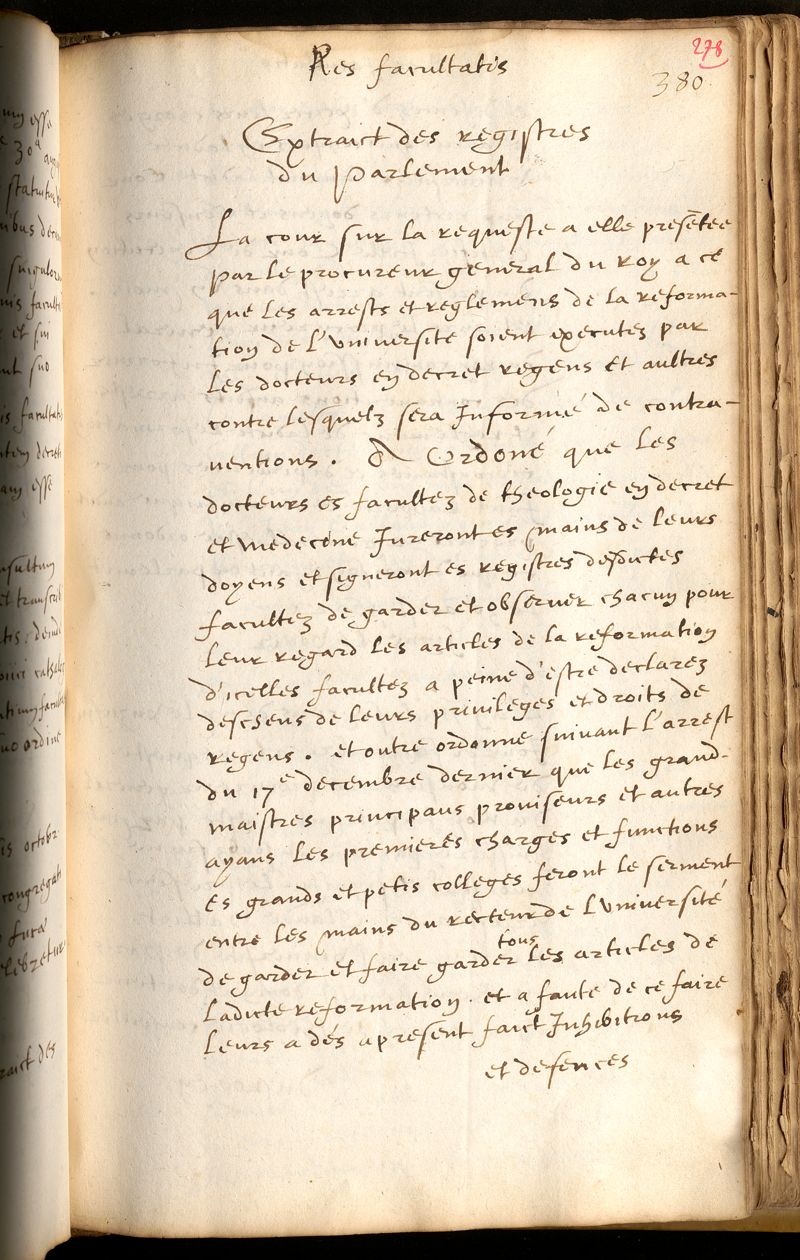 Res facultatis
278
380
Extraict des registres
du parlement
La cour sur la requeste a elle presētee
par le procureur general du roy a ce
que les arrests et reglemens de la reforma-
tion de l'université soient executez par
les docteurs en decret regens et aultres
contre lesquelz sera Informé de contra-
ventions. A Ordoné que les
docteurs es facultez de theologie en decret
et medecine Jureront es mains de leurs
doyens et signeront es registres desdictes
facultez de garder et observer chacun pour
leur regard les articles de la reformation
d'icelles facultez a peine d'estre declarez
descheus de leurs privileges et droits de
regens. et outre ordonne suivant l'arrest
du 17e decembre dernier que les grand-
maistres principaus proviseurs et autres
ayans les premieres charges et functions
es grands et petis colleges feront le serment
entre les mains du recteur de l'université
de garder et faire garder tous les articles de
ladicte reformation. et a faute de ce faire
leurs a dés apresent faict Inhibitions
et defences